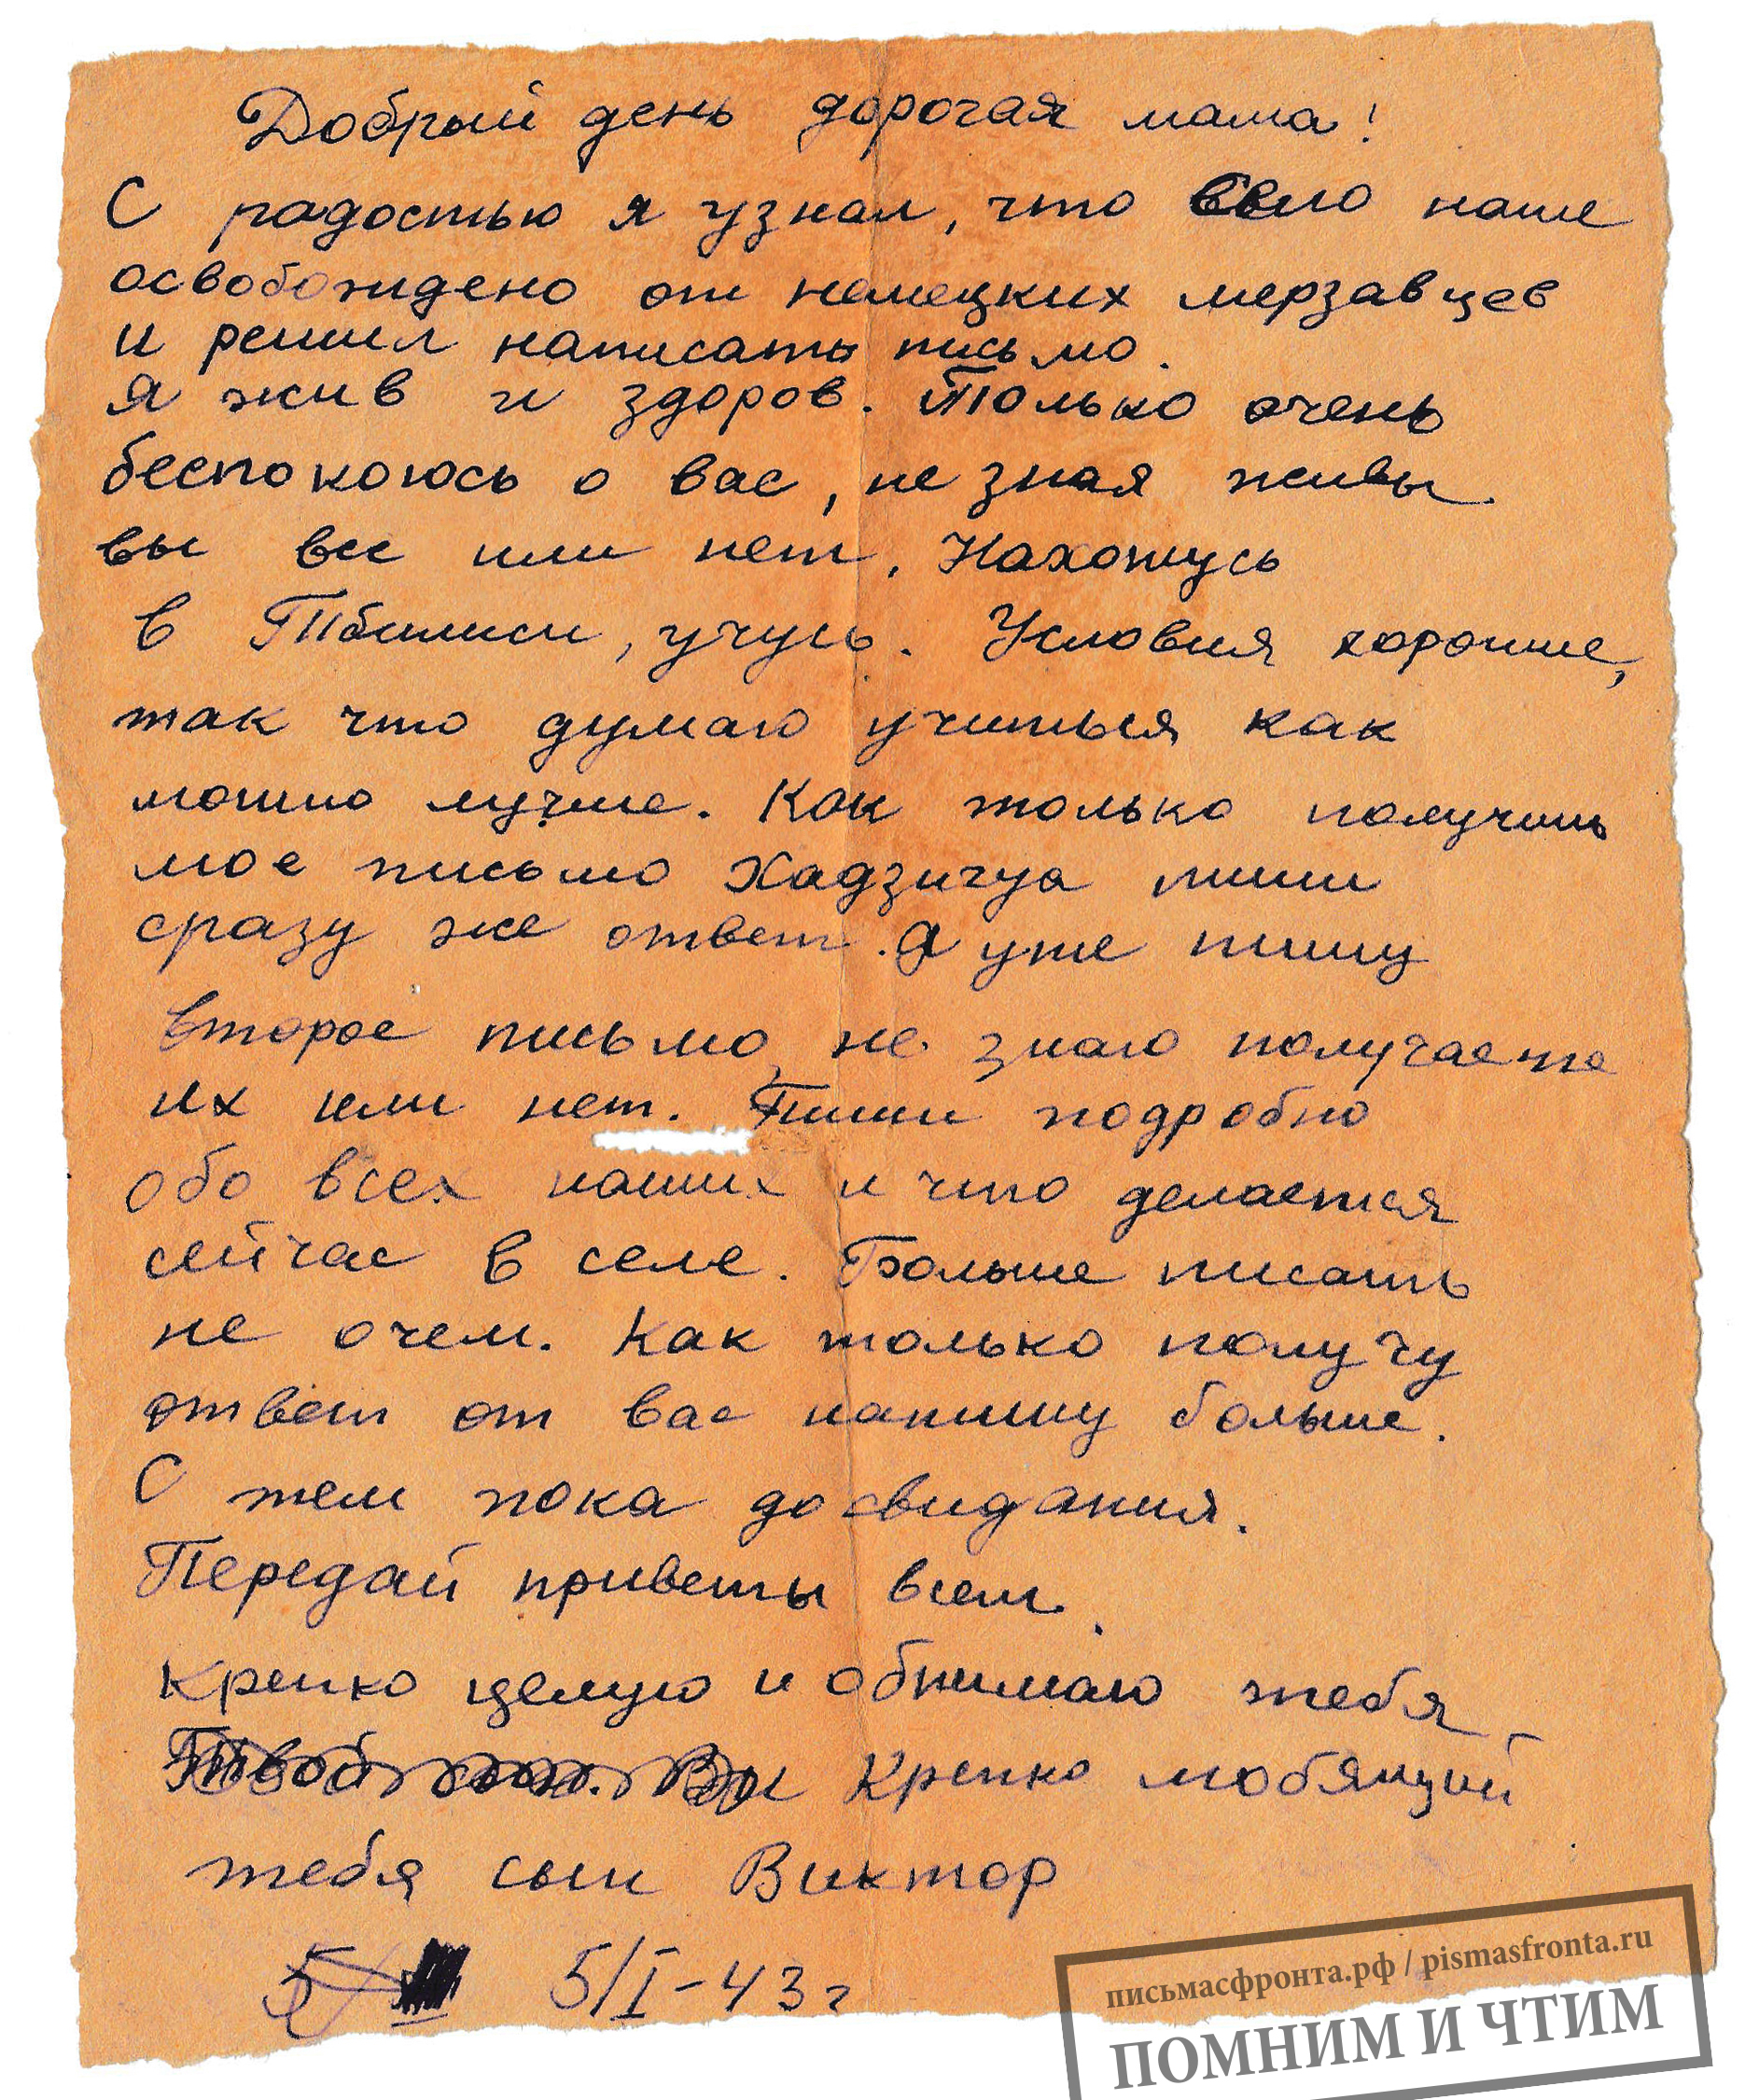 Добрый день дорогая мама!
С радостью я узнал, что село наше
освобождено от немецких мерзавцев
и решил написать письмо.
я жив и здоров. Только очень
беспокоюсь о вас, не зная живы
вы все или нет. Нахожусь
в Тбилиси, учусь. Условия хорошие,
так что думаю учиться как
можно лучше. Как только получишь
мое письмо Хадзигуа пиши
сразу же ответ. Я уже пишу
второе письмо, не знаю получаете
их или нет. Пиши подробно
обо всех наших и что делается
сейчас в селе. Больше писать
не очем. Как только получу
ответ от вас напишу больше.
С тем пока до свидания.
Передай приветы всем.
Крепко целую и обнимаю тебя
Твой сын. Крепко любящий
тебя сын Виктор
5 5/I-43г
письмасфронта.рф / pismasfronta.ru
ПОМНИМ И ЧТИМ